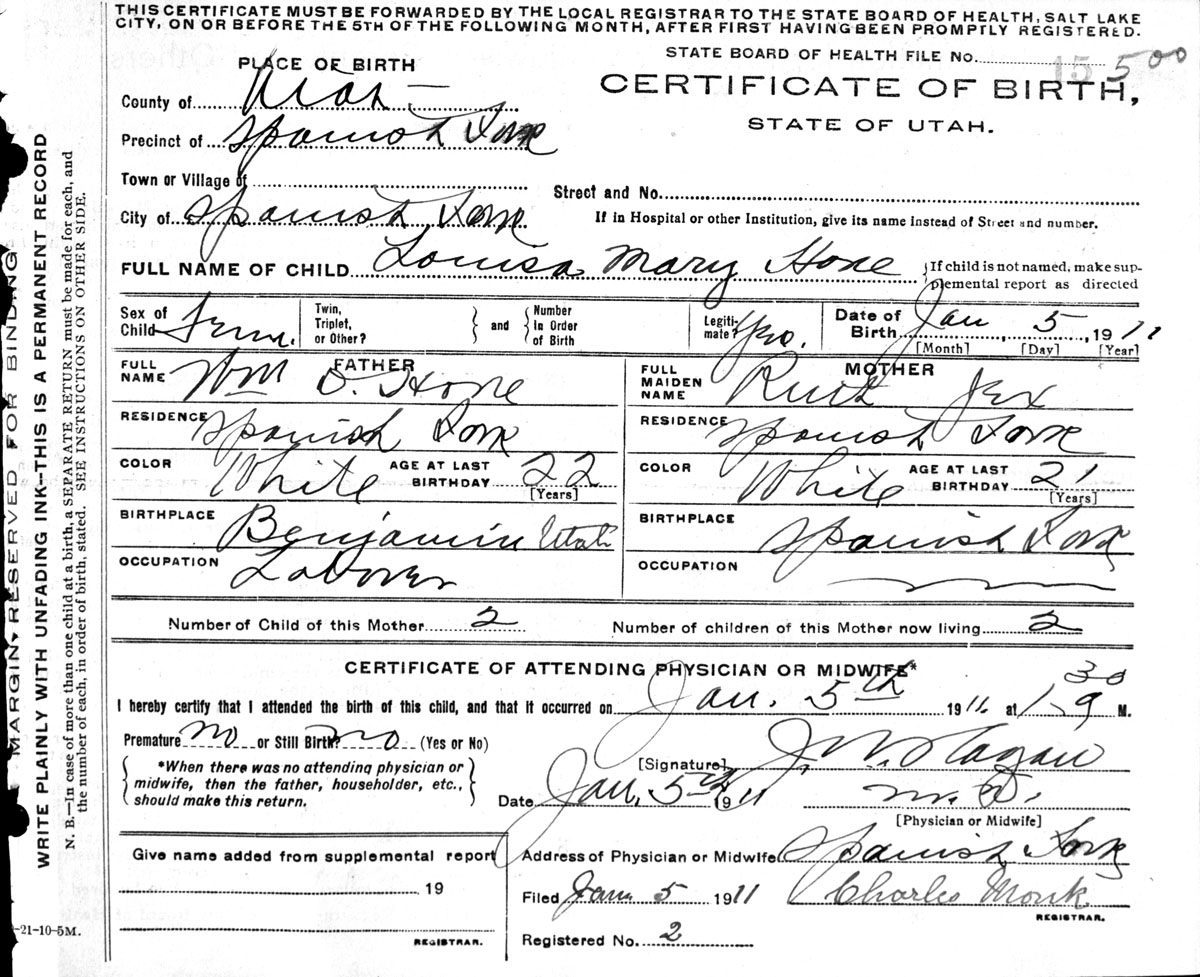 THIS CERTIFICATE MUST BE FORWARDED BY THE LOCAL REGISTRAR TO THE STATE BOARD OF HEALTH, SALT LAKE
CITY, ON OR BEFORE THE 5TH OF THE FOLLOWING MONTH, AFTER FIRST HAVING BEEN PROMPTLY REGISTERED.
STATE BOARD OF HEALTH FILE No. 15 500
PLACE OF BIRTH
CERTIFICATE OF BIRTH,
STATE OF UTAH.
County of Utah
Precinct of Spanish Fork
Town or Village of
Street and No.
City of Spanish Fork
If in Hospital or other Institution, give its name instead of Street and number.
FULL NAME OF CHILD Louisa Mary Hone
If child is not named, make sup-
plemental report as directed
Sex of Child Fem.
Twin, Triplet, or Other?
and
Number In Order of Birth
Legiti-mate?
Date of Birth Jan 5, 1911
[Month] [Day] [Year]
FATHER
FULL NAME Wm D. Hone
RESIDENCE Spanish Fork
COLOR White AGE AT LAST BIRTHDAY 22
[Years]
BIRTHPLACE Benjamin Utah
OCCUPATION Laborer
MOTHER
FULL MAIDEN NAME Ruth Jex
RESIDENCE Spanish Fork
COLOR White AGE AT LAST BIRTHDAY 21
[Years]
BIRTHPLACE Spanish Fork
OCCUPATION
Number of Child of this Mother 2 Number of children of this Mother now living 2
CERTIFICATE OF ATTENDING PHYSICIAN OR MIDWIFE*
I hereby certify that I attended the birth of this child, and that it occurred on Jan. 5th 1911, at M.
Premature no or Still Birth? no (Yes or No)
*When there was no attending physician or
midwife, then the father, householder, etc.,
should make this return.
[Signature] J. W. Hagan
Date Jan. 5th 1911 M. D.
[Physician or Midwife]
Give name added from supplemental report
19
REGISTRAR.
Address of Physician or Midwife Spanish Fork
Filed Jan 5 1911 Charles Monk
REGISTRAR.
Registered No. 2
MARGIN RESERVED FOR BINDING
WRITE PLAINLY WITH UNFADING INK—THIS IS A PERMANENT RECORD
N. B.—In case of more than one child at a birth, a SEPARATE RETURN must be made for each, and
the number of each, in order of birth, stated. SEE INSTRUCTIONS ON OTHER SIDE.
-21-10-5M.